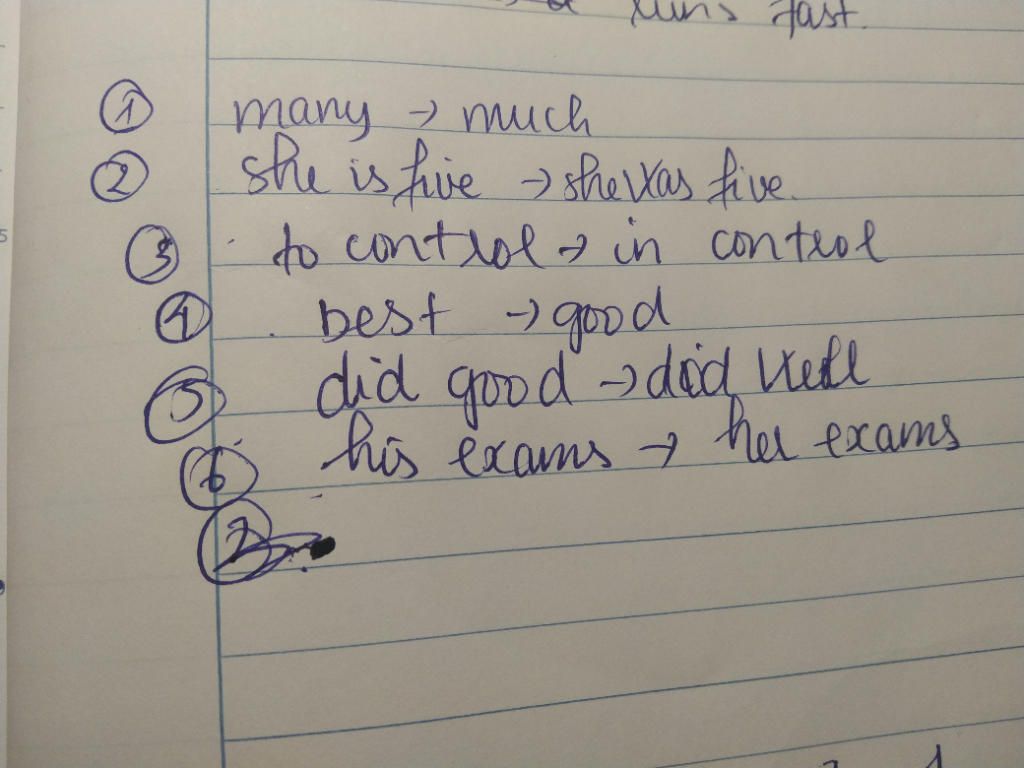 runs fast.
① many → much
② she is five → she was five.
③ to control → in control
④ best → good
⑤ did good → did well
⑥ his exams → her exams
⑦